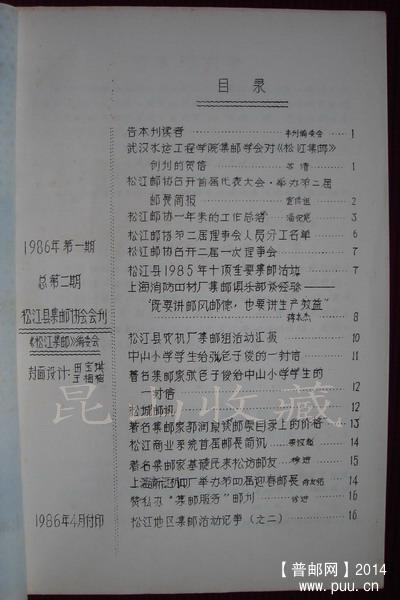 目录
告本刊读者 本刊编委会 1
武汉水运工程学院集邮学会对《松江集邮》
创刊的贺信 1
松江邮协召开首届代表大会·举办第二届
邮展简报 2
松江邮协一年来的工作总结 3
松江邮协第二届理事会人员分工名单 6
松江邮协召开二届一次理事会 7
松江县1985年十项主要集邮活动 7
上海消防四材厂集邮俱乐部谈经验——
"既要讲邮风邮德,也要讲生产效益" 8
松江县农机厂集邮组活动汇报 11
中山小学学生给张老子俊的一封信 12
著名集邮家张老子俊给中山小学学生的
封信 12
松城邮讯 12
著名集邮家郭润康谈邮票目录上的价格 13
松江商业系统首届邮展简讯 14
著名集邮家基硬民来松访邮友 15
上海新江机厂举办第四届迎春邮展 15
赞私办"集邮服务"邮刊 16
松江地区集邮活动记事(之二) 16
1986年第一期
总第二期
松江县集邮协会会刊
《松江集邮》编委会
封面设计:
1986年4月付印
昆山收藏
【普邮网】2014
www.puu.cn